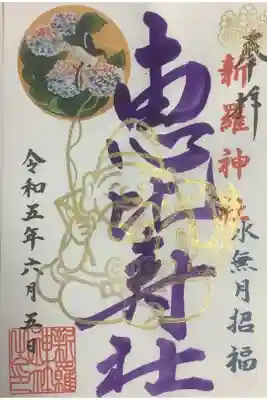 奉拝
新羅神社
水無月招福
恵比寿社
令和五年六月五日
新羅
神社
之印